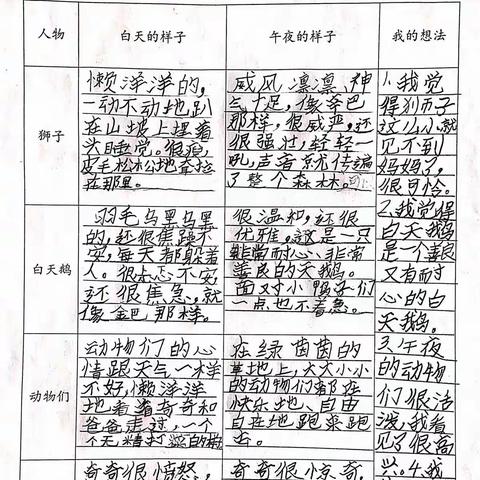 人物
白天的样子
午夜的样子
我的想法
狮子
懒洋洋的,
一动不动地趴
在山坡上埋着
头睡觉。很瘦,
皮毛松松垮垮地耷拉
在那里。
威风凛凛、神
气十足,像
那样,很威严,还
很强壮,轻轻一
吼,声音就传遍
了整个森林。
1.我觉
得狮子
这么小就
见不到
妈妈了,
很可怜。
白天鹅
羽毛乌黑乌黑
的,还很焦躁不
安,每天都躲着
人。很忐忑不安,
还很焦急,就
像 那样。
很温和,还很
优雅,这是一只
非常耐心、非常
善良的天鹅。
面对小鸭子们
一点也不着急。
2.我觉得
白天鹅
是一个善良
又有耐
心的白
天鹅。
动物们
动物们的心
情跟天气一样
不好,懒洋洋
地看着奇奇和
爸爸走过,一个
个无精打采的
在绿茵茵的
草地上,大大小小
的动物们都在
快乐地、自由
自在地跑来跑
去。
3.午夜
的动物
们很活
泼,我看
见了很高
兴。4.我
奇奇很愤怒,
奇奇很惊奇,